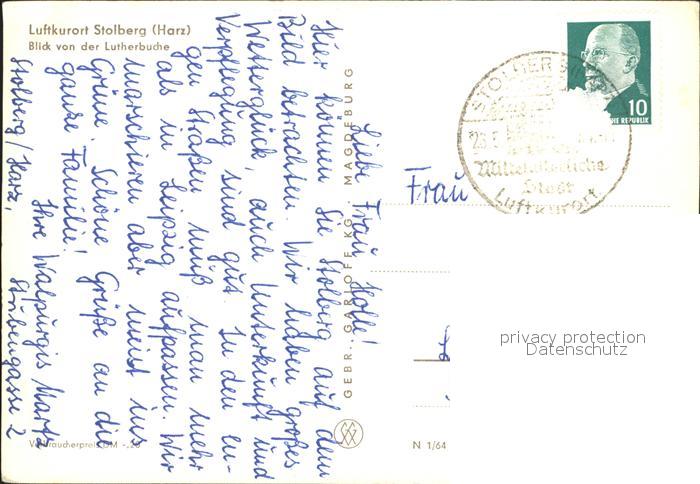 Luftkurort Stolberg (Harz)
Blick von der Lutherbuche
Liebe Frau Holle!
Hier können Sie Stolberg auf dem
Bild betrachten. Wir haben großes
Wetterglück, auch Unterkunft und
Verpflegung sind gut. In den en-
gen Straßen muß man mehr
als in Leipzig aufpassen. Wir
marschieren aber meist ins
Grüne. Schöne Grüße an die
ganze Familie!
Ihre Walpurgis Martz
Stolberg/Harz,
Stubengasse 2
GEBR. GARLOFF KG · MAGDEBURG
Verbraucherpreis DM -,20
N 1/64
10
STOLBERG
23.5
Mittelalterliche
Stadt
Luftkurort
Frau
privacy protection
Datenschutz